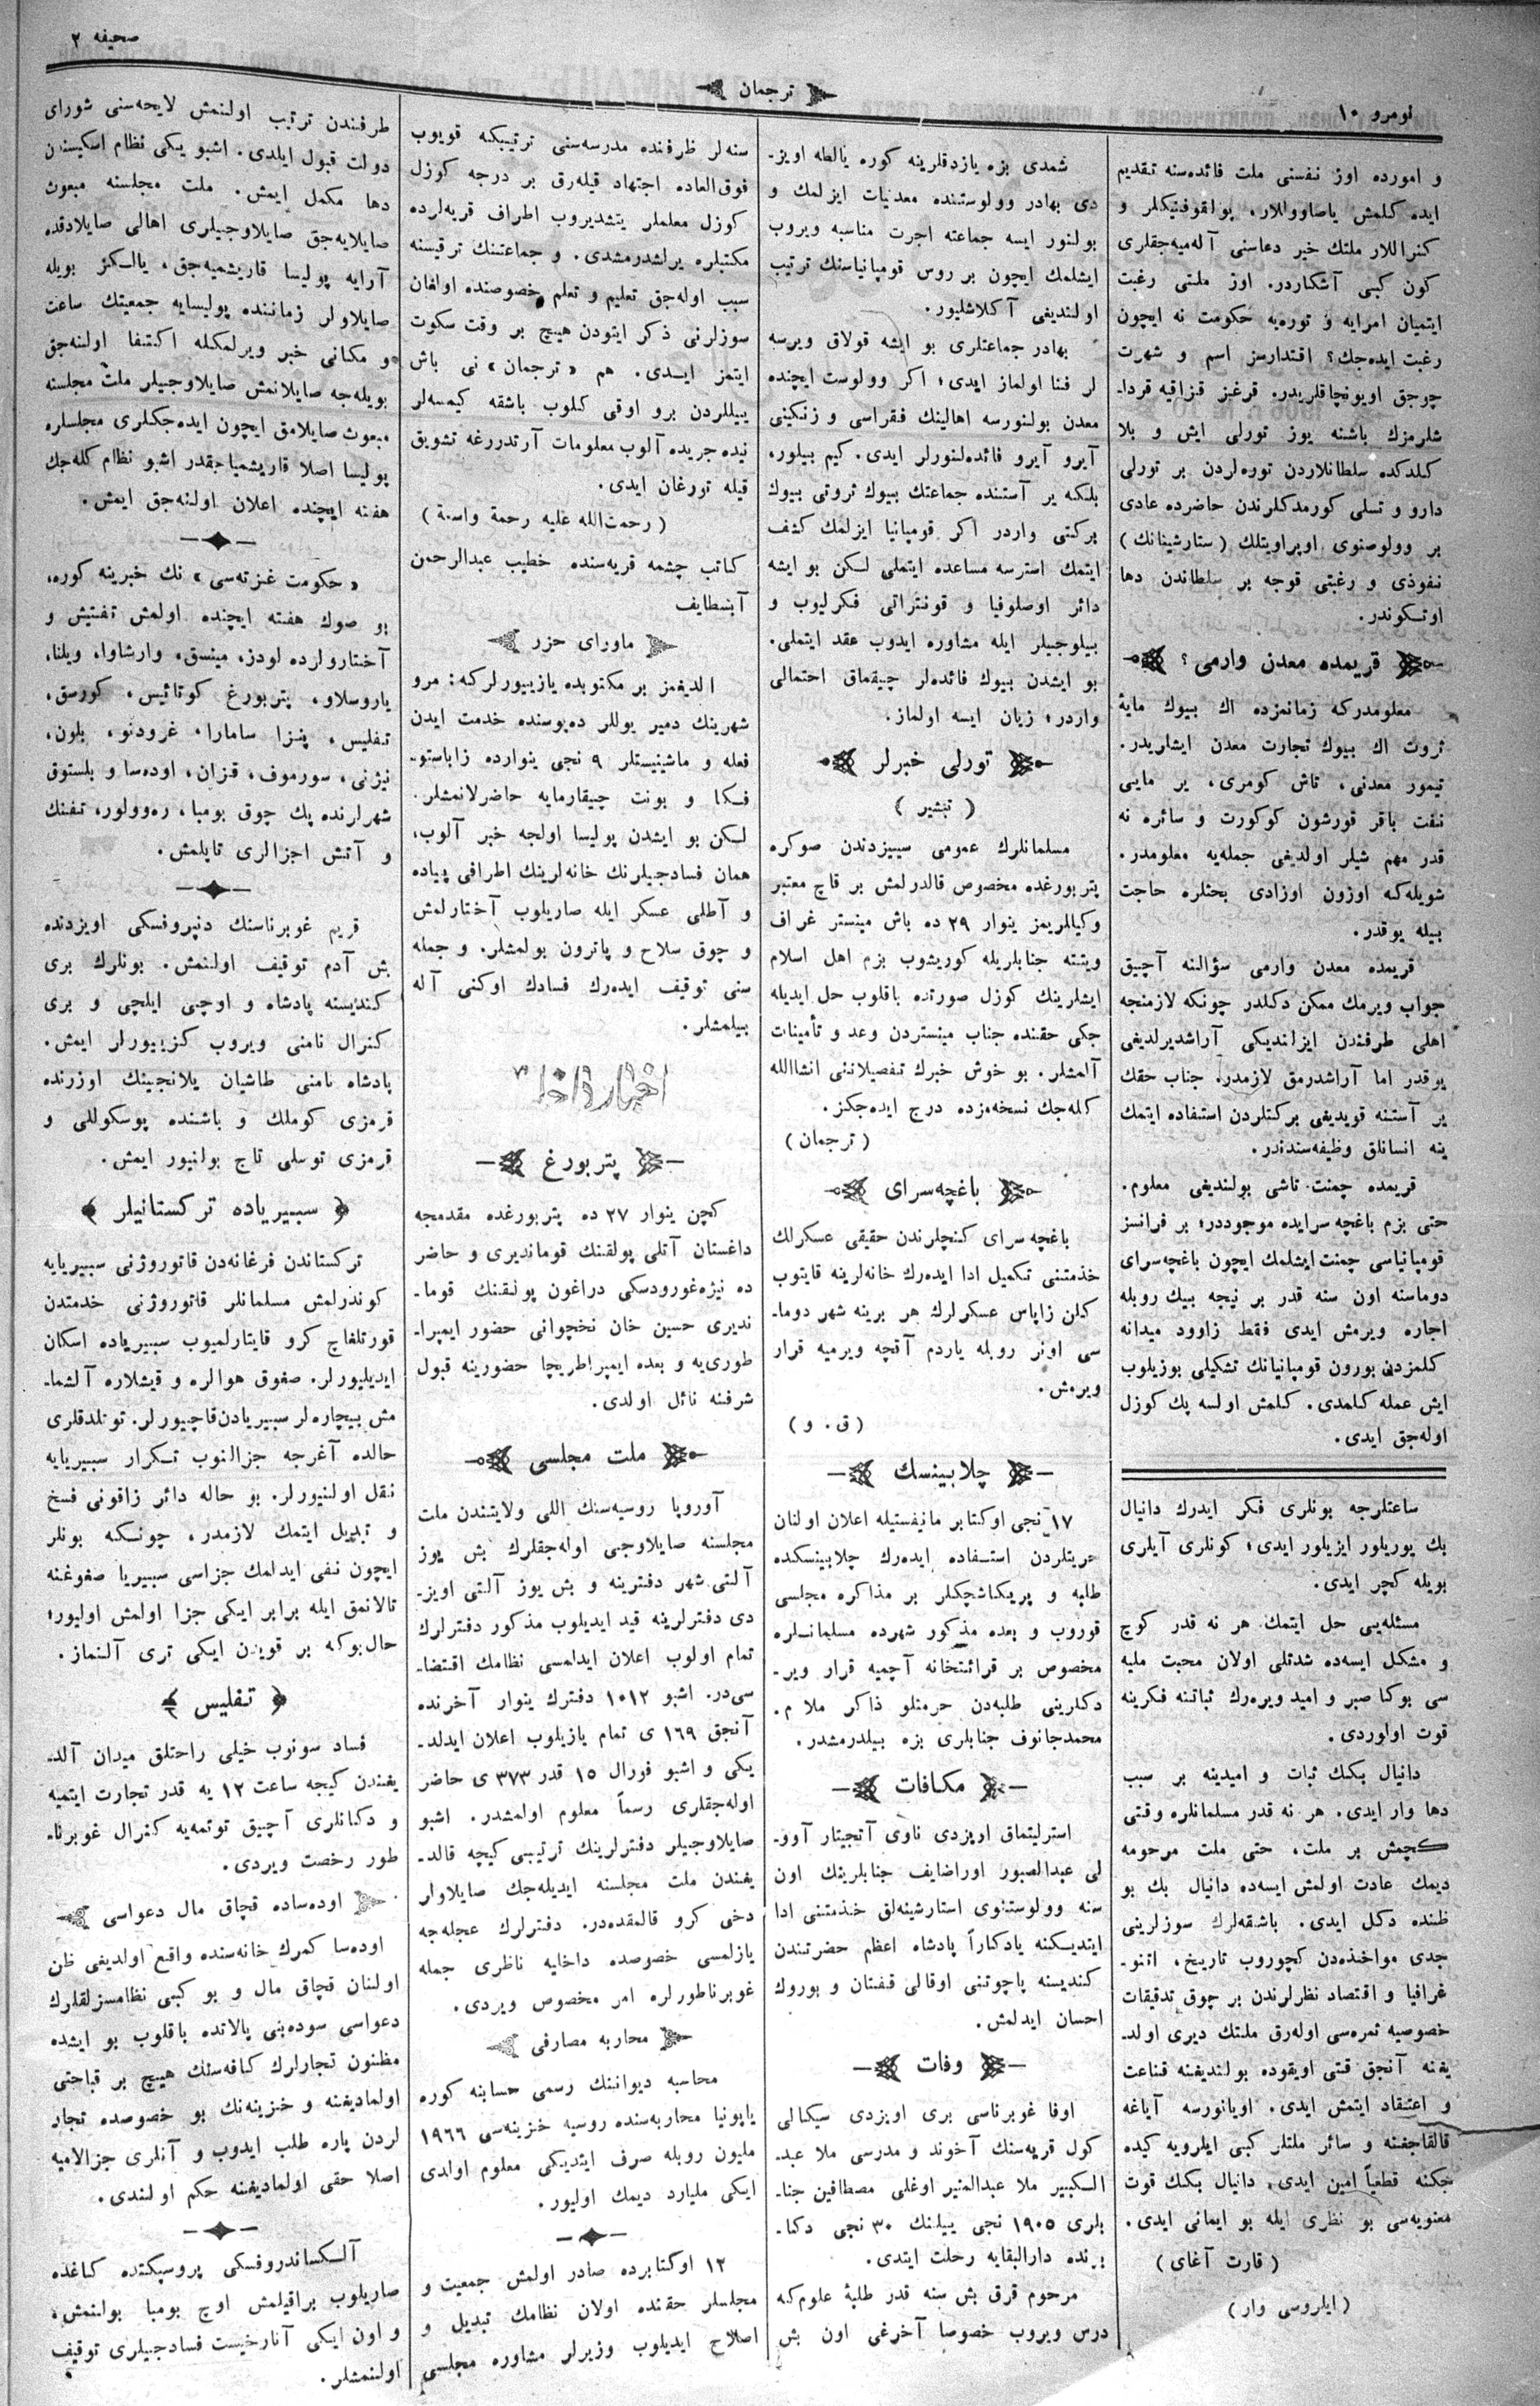 صحیفه ۲
ترجمان
نومرو ۱۰
و امورده اوز نفسنی ملت فائده‌سنه تقدیم
ایده کلمش یاصاووللار، پولقوفنیکلر و
کنراللار ملتك خیر دعاسنی آله‌میه‌جقلری
کون کبی آشکاردر. اوز ملتی رغبت
ایتمیان امرایه و توره‌یه حکومت نه ایچون
رغبت ایده‌جك؟ اقتدارسز اسم و شهرت
چرجق اویونچاقلریدر. قرغیز قزاقیه قردا-
شلرمزك باشنه یوز تورلی ایش و بلا
کلدکده سلطانلاردن توره‌لردن بر تورلی
دارو و تسلی کورمدکلرندن حاضرده عادی
بر وولوصنوی اوپراویتلك (ستارشینانك)
نفوذی و رغبتی قوجه بر سلطاندن دها
اوتسکوندر.
قریمده معدن وارمی؟
معلومدرکه زمانمزده اك بیوك مایهٔ
ثروت اك بیوك تجارت معدن ایشاریدر.
تیمور معدنی، تاش کومری، یر مایی
نفت باقر قورشون کوکورت و سائره نه
قدر مهم شیلر اولدیغی جمله‌یه معلومدر.
شویله‌که اوزون اوزادی بحثلره حاجت
بیله یوقدر.
قریمده معدن وارمی سؤالنه آچیق
جواب ویرمك ممکن دکلدر چونکه لازمنجه
اهلی طرفندن ایزلندیکی آراشدیرلدیغی
یوقدر اما آراشدرمق لازمدر. جناب حقك
یر آستنه قویدیغی برکتلردن استفاده ایتمك
ینه انسانلق وظیفه‌سندندر.
قریمده چمنت تاشی بولندیغی معلوم.
حتی بزم باغچه سرایده موجوددر؛ بر فرانسز
قومپانیاسی چمنت ایشلمك ایچون باغچه‌سرای
دوماسنه اون سنه قدر بر نیجه بیك روبله
اجاره ویرمش ایدی فقط زاوود میدانه
کلمزدن بورون قومپانیانك تشکیلی بوزیلوب
ایش عمله کلمدی. کلمش اولسه پك کوزل
اوله‌جق ایدی.
ساعتلرجه بونلری فکر ایدرك دانیال
بك یوریلور ایزیلور ایدی؛ کونلری آیلری
بویله کچر ایدی.
مسئله‌یی حل ایتمك هر نه قدر کوچ
و مشکل ایسه‌ده شدتلی اولان محبت ملیه
سی بوکا صبر و امید ویره‌رك ثباتنه فکرینه
قوت اولوردی.
دانیال بکك ثبات و امیدینه بر سبب
دها وار ایدی. هر نه قدر مسلمانلره وقتی
کچمش بر ملت، حتی ملت مرحومه
دیمك عادت اولمش ایسه‌ده دانیال بك بو
ظنده دکل ایدی. باشقه‌لرك سوزلرینی
جدی مواخذه‌دن کچوروب تاریخ، اتنو-
غرافیا و اقتصاد نظرلرندن بر چوق تدقیقات
خصوصیه ثمره‌سی اوله‌رق ملتك دیری اولد-
یغنه آنجق قتی اویقوده بولندیغنه قناعت
و اعتقاد ایتمش ایدی. اویانورسه آیاغه
قالقاجغنه و سائر ملتلر کبی ایلرویه کیده
جکنه قطعیاً امین ایدی. دانیال بکك قوت
معنویه‌سی بو نظری ایله بو ایمانی ایدی.
(قارت آغای)
(ایلروسی وار)
شمدی بزه یازدقلرینه کوره یالطه اویز-
دی بهادر وولوستنده معدنیات ایزلمك و
بولنور ایسه جماعته اجرت مناسبه ویروب
ایشلمك ایچون بر روس قومپانیاسنك ترتیب
اولندیغی آکلاشلیور.
بهادر جماعتلری بو ایشه قولاق ویرسه
لر فنا اولماز ایدی؛ اکر وولوست ایچنده
معدن بولنورسه اهالینك فقراسی و زنکینی
آیرو آیرو فائده‌لنورلر ایدی. کیم بیلور،
بلکه یر آستنده جماعتك بیوك ثروتی بیوك
برکتی واردر اکر قومپانیا ایزلمك کشف
ایتمك استرسه مساعده ایتملی لکن بو ایشه
دائر اوصلوفیا و قونتراتی فکرلیوب و
بیلوجیلر ایله مشاوره ایدوب عقد ایتملی.
بو ایشدن بیوك فائده‌لر چیقماق احتمالی
واردر؛ زیان ایسه اولماز.
تورلی خبرلر
(تبشیر)
مسلمانلرك عمومی سییزدندن صوکره
پتربورغده مخصوص قالدرلمش بر قاچ معتبر
وکیاللریمز ینوار ۲۹ ده باش مینستر غراف
ویتته جنابلریله کوریشوب بزم اهل اسلام
ایشلرینك کوزل صورتده باقلوب حل ایدیله
جکی حقنده جناب مینستردن وعد و تأمینات
آلمشلر. بو خوش خبرك تفصیلاتنی انشاالله
کله‌جك نسخه‌مزده درج ایده‌جکز.
(ترجمان)
باغچه‌سرای
باغچه سرای کنچلرندن حقیقی عسکرلك
خذمتنی تکمیل ادا ایده‌رك خانه‌لرینه قایتوب
کیلن زاپاس عسکرلرك هر برینه شهر دوما-
سی اونر روبله یاردم آقچه ویرمیه قرار
ویرمش.
(ق. و)
چلابینسك
۱۷ نجی اوکتابر مانیفستیله اعلان اولنان
حریتلردن استفاده ایده‌رك چلابینسکده
طلبه و پریکاشچکلر بر مذاکره مجلسی
قوروب و بعده مذکور شهرده مسلمانلره
مخصوص بر قرائتخانه آچمیه قرار ویر-
دکلرینی طلبه‌دن حرمتلو ذاکر ملا م.
محمدجانوف جنابلری بزه بیلدرمشدر.
مکافات
استرلیتماق اویزدی ناوی آتجیتار آوو-
لی عبدالصبور اوراضایف جنابلرینك اون
سنه وولوستنوی استارشینه‌لق خذمتنی ادا
ایتدیکنه یادکاراً پادشاه اعظم حضرتندن
کندیسنه پاچوتنی اوقالی قفتان و بوروك
احسان ایدلمش.
وفات
اوفا غوبرناسی بری اویزدی سیکالی
کول قریه‌سنك آخوند و مدرسی ملا عبد-
الکبیر ملا عبدالمنیر اوغلی مصطافین جنا-
بلری ۱۹۰۵ نجی ییلنك ۳۰ نجی دکا-
برنده دارالبقایه رحلت ایتدی.
مرحوم قرق بش سنه قدر طلبهٔ علومکه
درس ویروب خصوصا آخرغی اون بش
سنه‌لر ظرفنده مدرسه‌سنی ترتیبکه قویوب
فوق‌العاده اجتهاد قیله‌رق بر درجه کوزل
کوزل معلملر یتشدیروب اطراف قریه‌لرده
مکتبلره یرلشدرمشدی. و جماعتنك ترقیسنه
سبب اوله‌جق تعلیم و تعلم خصوصنده اولغان
سوزلرنی ذکر ایتودن هیچ بر وقت سکوت
ایتمز ایدی. هم «ترجمان» نی باش
ییللردن برو اوقی کلوب باشقه کیمسه‌لر
نیده جریده آلوب معلومات آرتدررغه تشویق
قیله تورغان ایدی.
(رحمت‌الله علیه رحمة واسعة)
کاتب چشمه قریه‌سنده خطیب عبدالرحمن
آیسطایف
ماورای خزر
الدیغمز بر مکتوبده یازیبورلرکه: مرو
شهرینك دمیر یوللر ده‌پوسنده خدمت ایدن
فعله و ماشینیستلر ۹ نجی ینوارده زاباستو-
فکا و بونت چیقارمایه حاضرلانمشلر.
لکن بو ایشدن پولیسا اولجه خبر آلوب،
همان فسادجیلرنك خانه‌لرینك اطرافی پیاده
و آطلی عسکر ایله صاریلوب آختارلمش
و چوق سلاح و پاترون بولمشلر. و جمله
سنی توقیف ایده‌رك فسادك اوکنی آله
بیلمشلر.
اخبار داخلیه
پتربورغ
کچن ینوار ۲۷ ده پتربورغده مقدمجه
داغستان آتلی پولقنك قوماندیری و حاضر
ده نیژه‌غورودسکی دراغون پولقنك قوما-
ندیری حسین خان نخچوانی حضور ایمپرا-
طوری‌یه و بعده ایمپراطریچا حضورینه قبول
شرفنه نائل اولدی.
ملت مجلسی
آوروپا روسیه‌سنك اللی ولایتندن ملت
مجلسنه صایلاوجی اوله‌جقلرك بش یوز
آلتی شهر دفترینه و بش یوز آلتی اویز-
دی دفترلرینه قید ایدیلوب مذکور دفترلرك
تمام اولوب اعلان ایدلمسی نظامك اقتضا-
سی‌در. اشبو ۱۰۱۲ دفترك ینوار آخرنده
آنجق ۱۶۹ ی تمام یازیلوب اعلان ایدلد-
یکی و اشبو فورال ۱۵ قدر ۳۷۳ ی حاضر
اوله‌جقلری رسماً معلوم اولمشدر. اشبو
صایلاوجیلر دفترلرینك ترتیبی کیچه قالد-
یغندن ملت مجلسنه ایدیله‌جك صایلاولر
دخی کرو قالمقده‌در. دفترلرك عجله‌جه
یازلمسی خصوصده داخلیه ناظری جمله
غوبرناطورلره امر مخصوص ویردی.
محاربه مصارفی
محاسبه دیواننك رسمی حسابنه کوره
یاپونیا محاربه‌سنده روسیه خزینه‌سی ۱۹۶۶
ملیون روبله صرف ایتدیکی معلوم اولدی
ایکی ملیارد دیمك اولیور.
۱۲ اوکتابرده صادر اولمش جمعیت و
مجلسلر حقنده اولان نظامك تبدیل و
اصلاح ایدیلوب وزیرلر مشاوره مجلسی
طرفندن ترتیب اولنمش لایحه‌سنی شورای
دولت قبول ایلدی. اشبو یکی نظام اسکیسندن
دها مکمل ایمش. ملت مجلسنه مبعوث
صایلایه‌جق صایلاوجیلری اهالی صایلادقده
آرایه پولیسا قاریشمیه‌جق، یاالکز بویله
صایلاولر زماننده پولیسایه جمعیتك ساعت
و مکانی خبر ویرلمکله اکتفا اولنه‌جق
بویله‌جه صایلانمش صایلاوجیلر ملت مجلسنه
مبعوث صایلامق ایچون ایده‌جکلری مجلسلره
پولیسا اصلا قاریشمیاجقدر اشبو نظام کله‌جك
هفته ایچنده اعلان اولنه‌جق ایمش.
«حکومت غزته‌سی» نك خبرینه کوره،
بو صوك هفته ایچنده اولمش تفتیش و
آختارولرده لودز، مینسق، وارشاوا، ویلنا،
یاروسلاو، پتربورغ کوتائیس، کورسق،
تفلیس، پنزا سامارا، غرودنو، بلون،
نیژنی، سورموف، قزان، اوده‌سا و بلستوق
شهرلرنده پك چوق بومبا، ره‌وولور، تفنك
و آتش اجزالری تاپلمش.
قریم غوبرناسنك دنپروفسکی اویزدنده
بش آدم توقیف اولنمش. بونلرك بری
کندیسنه پادشاه و اوچی ایلچی و بری
کنرال نامنی ویروب کزییورلر ایمش.
پادشاه نامنی طاشیان یلانجینك اوزرنده
قرمزی کوملك و باشنده پوسکوللی و
قرمزی توسلی تاج بولنیور ایمش.
سیبیریاده ترکستانیلر
ترکستاندن فرغانه‌دن قاتوروژنی سیبیریایه
کوندرلمش مسلمانلر قاتوروژنی خدمتدن
قورتلغاچ کرو قایتارلمیوب سیبیریاده اسکان
ایدیلیورلر. صغوق هوالره و قیشلاره آلشما-
مش بیچاره‌لر سیبیریادن قاچیورلر. توتلدقلری
حالده آغرجه جزالنوب تکرار سیبیریایه
نقل اولنیورلر. بو حاله دائر زاقونی فسخ
و تبدیل ایتمك لازمدر، چونکه بونلر
ایچون نفی ایدلمك جزاسی سیبیریا صغوغنه
تالانمق ایله برابر ایکی جزا اولمش اولیور؛
حال‌بوکه بر قویدن ایکی تری آلنماز.
تفلیس
فساد سونوب خیلی راحتلق میدان آلد-
یغندن کیجه ساعت ۱۲ یه قدر تجارت ایتمیه
و دکانلری آچیق توتمه‌یه کنرال غوبرنا-
طور رخصت ویردی.
اوده‌ساده قچاق مال دعواسی
اوده‌سا کمرك خانه‌سنده واقع اولدیغی ظن
اولنان قچاق مال و بو کبی نظامسزلقلرك
دعواسی سوده‌بنی پالاتده باقلوب بو ایشده
مظنون تجارلرك کافه‌سنك هیچ بر قباحتی
اولمادیغنه و خزینه‌نك بو خصوصده تجار
لردن پاره طلب ایدوب و آنلری جزالامیه
اصلا حقی اولمادیغنه حکم اولندی.
آلکساندروفسکی پروسپکتده کاغده
صاریلوب براقیلمش اوچ بومبا بولنمش،
و اون ایکی آنارخیست فسادجیلری توقیف
اولنمشلر.